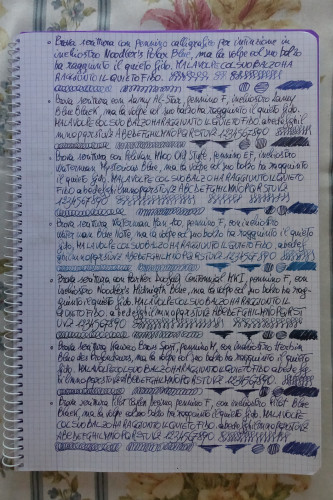 Prova scrittura con pennino calligrafico per intinzione in
inchiostro Noodler's Polar Blue, ma la volpe col suo balzo
ha raggiunto il quieto fido. MALAVOLPECOLSUOBALZOHA
RAGGIUNTO IL QUIETO FIDO.
Prova scrittura con Lamy Al-Star, pennino F, inchiostro Lamy
Blue Black, ma la volpe col suo balzo ha raggiunto il quieto fido.
MALAVOLPECOLSUOBALZOHARAGGIUNTOILQUIETOFIDO. abcdefghil
mnopqrstuvz ABCDEFGHILMNOPQRSTUVZ 1234567890
Prova scrittura con Pelikan M800 Old Style, pennino EF, inchiostro
Waterman Mysterious Blue, ma la volpe col suo balzo ha raggiunto
il quieto fido. MALAVOLPECOLSUOBALZOHARAGGIUNTO IL QUIETO
FIDO. abcdefghilmnopqrstuvz ABCDEFGHILMNOPQRSTUVZ
1234567890
Prova scrittura Waterman, pennino F, con inchiostro
Waterman Blue, ma la volpe col suo balzo ha raggiunto il quieto
fido. MALAVOLPECOLSUOBALZOHARAGGIUNTOILQUIETOFIDO. abcdef
ghilmnopqrstuvz ABCDEFGHILMNOPQRSTUVZ 1234567890
Prova scrittura con Parker MK I, pennino F, con
inchiostro Noodler's Midnight Blue, ma la volpe col suo balzo ha rag-
giunto il quieto fido. MALAVOLPECOLSUOBALZOHARAGGIUNTO IL
QUIETO FIDO. abcdefghilmnopqrstuvz ABCDEFGHILMNOPQRST
UVZ 1234567890
Prova scrittura Kaweco Sport, pennino M, con inchiostro
Bleu des Profondeurs, ma la volpe col suo balzo ha raggiunto il quieto
fido. MALAVOLPECOLSUOBALZOHARAGGIUNTOILQUIETO FIDO. abcdef
ghilmnopqrstuvz ABCDEFGHILMNOPQRSTUVZ 1234567890
Prova scrittura Pilot, pennino F, con inchiostro Pilot Blue
Black, ma la volpe col suo balzo ha raggiunto il quieto fido. MALAVOLPE
COLSUOBALZOHARAGGIUNTOILQUIETOFIDO. abcdefghilmnopqrstuvz
ABCDEFGHILMNOPQRSTUVZ 1234567890